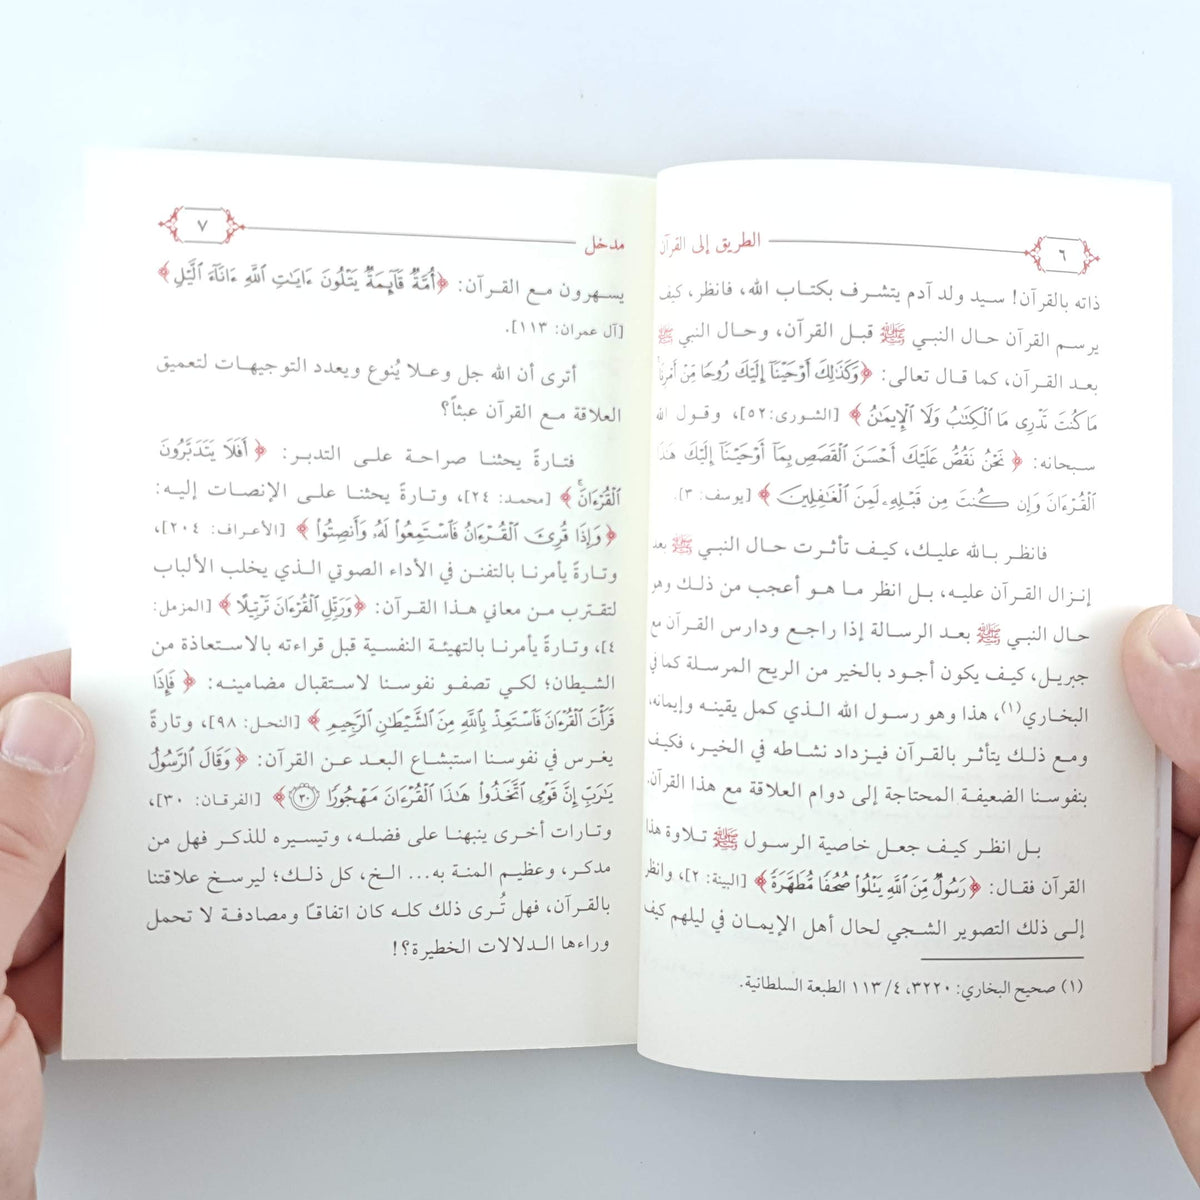 ٦
الطريق إلى القرآن
ذاته بالقرآن! سيد ولد آدم يتشرف بكتاب الله، فانظر، كيف
يرسم القرآن حال النبي ﷺ قبل القرآن، وحال النبي ﷺ
بعد القرآن، كما قال تعالى: ﴿وَكَذَٰلِكَ أَوْحَيْنَآ إِلَيْكَ رُوحًا مِّنْ أَمْرِنَا
مَا كُنتَ تَدْرِى مَا ٱلْكِتَٰبُ وَلَا ٱلْإِيمَٰنُ﴾ [الشورى: ٥٢]، وقول الله
سبحانه: ﴿نَحْنُ نَقُصُّ عَلَيْكَ أَحْسَنَ ٱلْقَصَصِ بِمَآ أَوْحَيْنَآ إِلَيْكَ هَٰذَا
ٱلْقُرْءَانَ وَإِن كُنتَ مِن قَبْلِهِۦ لَمِنَ ٱلْغَٰفِلِينَ﴾ [يوسف: ٣].
فانظر بالله عليك، كيف تأثرت حال النبي ﷺ بعد
إنزال القرآن عليه، بل انظر ما هو أعجب من ذلك وهو
حال النبي ﷺ بعد الرسالة إذا راجع ودارس القرآن مع
جبريل، كيف يكون أجود بالخير من الريح المرسلة كما في
البخاري(١)، هذا وهو رسول الله الذي كمل يقينه وإيمانه،
ومع ذلك يتأثر بالقرآن فيزداد نشاطه في الخير، فكيف
بنفوسنا الضعيفة المحتاجة إلى دوام العلاقة مع هذا القرآن.
بل انظر كيف جعل خاصية الرسول ﷺ تلاوة هذا
القرآن فقال: ﴿رَسُولٌ مِّنَ ٱللَّهِ يَتْلُوا۟ صُحُفًا مُّطَهَّرَةً﴾ [البينة: ٢]، وانظر
إلى ذلك التصوير الشجي لحال أهل الإيمان في ليلهم كيف
(١) صحيح البخاري: ٣٢٢٠، ٤/ ١١٣ الطبعة السلطانية.
مدخل
٧
يسهرون مع القرآن: ﴿أُمَّةٌ قَآئِمَةٌ يَتْلُونَ ءَايَٰتِ ٱللَّهِ ءَانَآءَ ٱلَّيْلِ﴾
[آل عمران: ١١٣].
أترى أن الله جل وعلا يُنوع ويعدد التوجيهات لتعميق
العلاقة مع القرآن عبثاً؟
فتارةً يحثنا صراحة على التدبر: ﴿أَفَلَا يَتَدَبَّرُونَ
ٱلْقُرْءَانَ﴾ [محمد: ٢٤]، وتارة يحثنا على الإنصات إليه:
﴿وَإِذَا قُرِئَ ٱلْقُرْءَانُ فَٱسْتَمِعُوا۟ لَهُۥ وَأَنصِتُوا۟﴾ [الأعراف: ٢٠٤]،
وتارةً يأمرنا بالتفنن في الأداء الصوتي الذي يخلب الألباب
لتقترب من معاني هذا القرآن: ﴿وَرَتِّلِ ٱلْقُرْءَانَ تَرْتِيلًا﴾ [المزمل:
٤]، وتارةً يأمرنا بالتهيئة النفسية قبل قراءته بالاستعاذة من
الشيطان؛ لكي تصفو نفوسنا لاستقبال مضامينه: ﴿فَإِذَا
قَرَأْتَ ٱلْقُرْءَانَ فَٱسْتَعِذْ بِٱللَّهِ مِنَ ٱلشَّيْطَٰنِ ٱلرَّجِيمِ﴾ [النحل: ٩٨]، وتارةً
يغرس في نفوسنا استبشاع البعد عن القرآن: ﴿وَقَالَ ٱلرَّسُولُ
يَٰرَبِّ إِنَّ قَوْمِى ٱتَّخَذُوا۟ هَٰذَا ٱلْقُرْءَانَ مَهْجُورًا ٣٠﴾ [الفرقان: ٣٠]،
وتارات أخرى ينبهنا على فضله، وتيسيره للذكر فهل من
مدكر، وعظيم المنة به... الخ، كل ذلك؛ ليرسخ علاقتنا
بالقرآن، فهل تُرى ذلك كله كان اتفاقًا ومصادفة لا تحمل
وراءها الدلالات الخطيرة؟!